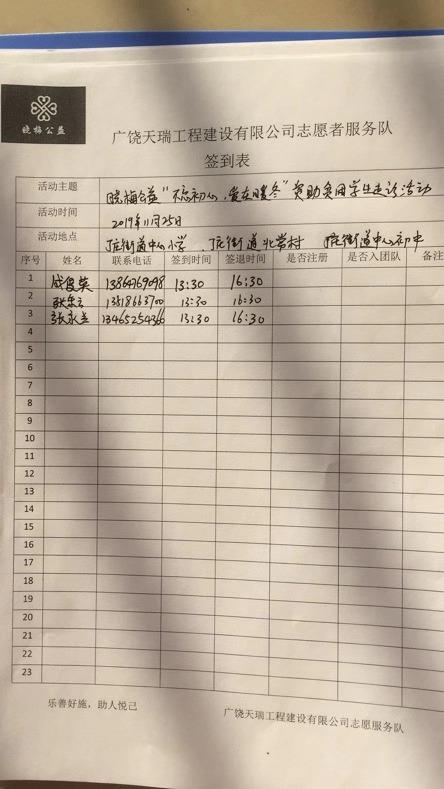 晓梅公益
广饶天瑞工程建设有限公司志愿者服务队
签到表
活动主题 晓梅公益“不忘初心,爱在暖冬”资助贫困学生走访活动
活动时间 2019年11月25日
活动地点 街道中心小学、街道北营村 街道中心初中
序号 姓名 联系电话 签到时间 签退时间 是否注册 是否入团队 备注
1 成俊英 13864769098 13:30 16:30
2 13518663700 13:30 16:30
3 张永兰 13465254366 13:30 16:30
4
5
6
7
8
9
10
11
12
13
14
15
16
17
18
19
20
21
22
23
乐善好施,助人悦己
广饶天瑞工程建设有限公司志愿服务队